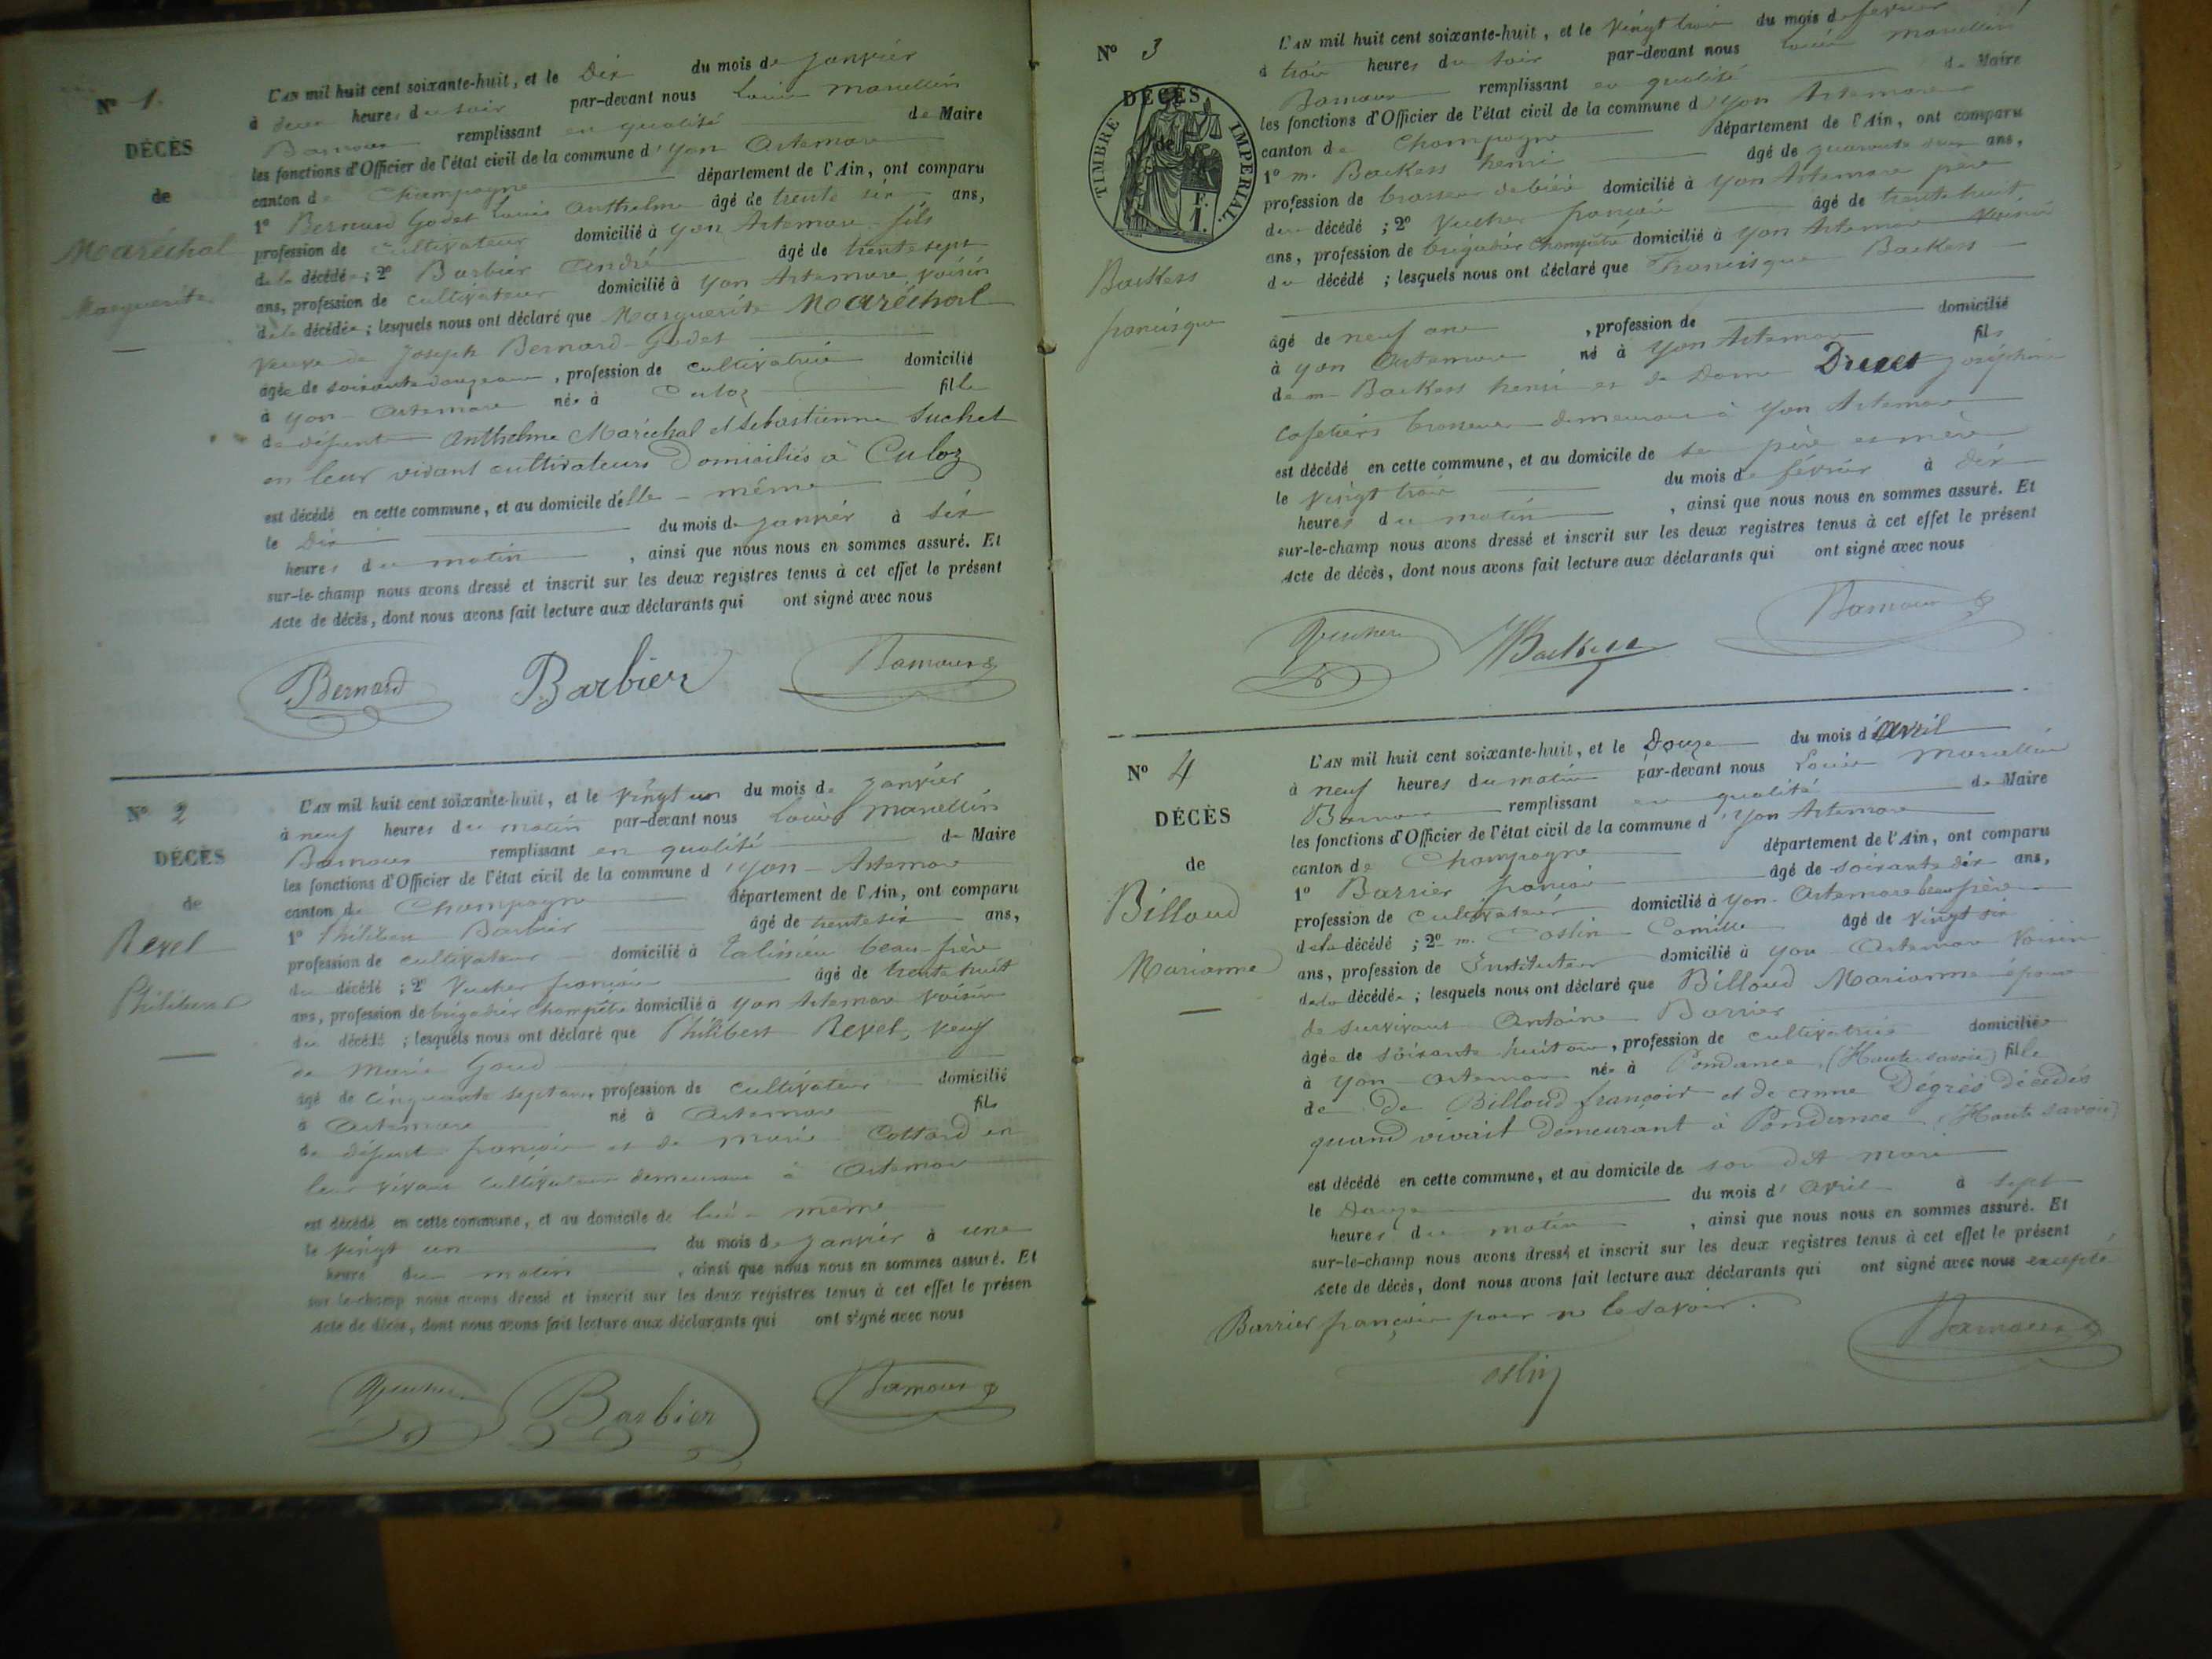 N° 1.
DÉCÈS
de
Maréchal
Marguerite
L'AN mil huit cent soixante-huit, et le Dix du mois de janvier
à deux heures du soir par-devant nous Louis Marcellin
Bamoux remplissant en qualité de Maire
les fonctions d'Officier de l'état civil de la commune d'Yon Artemare
canton de Champagne département de l'Ain, ont comparu
1° Bernard Godet Louis Anthelme âgé de trente six ans,
profession de cultivateur domicilié à Yon Artemare fils
de la décédée; 2° Barbier André âgé de trente sept
ans, profession de cultivateur domicilié à Yon Artemare voisin
de la décédée; lesquels nous ont déclaré que Marguerite Maréchal
veuve de Joseph Bernard-Godet
âgée de soixante douze ans, profession de cultivatrice domicilié
à Yon-Artemare née à Culoz fille
de défunts Anthelme Maréchal et Sébastienne Suchet
en leur vivant cultivateurs Domiciliés à Culoz
est décédé en cette commune, et au domicile d'elle-même
le Dix du mois de janvier à six
heures du matin, ainsi que nous nous en sommes assuré. Et
sur-le-champ nous avons dressé et inscrit sur les deux registres tenus à cet effet le présent
Acte de décès, dont nous avons fait lecture aux déclarants qui ont signé avec nous
Bernard Barbier Bamoux
N° 2
DÉCÈS
de
Revel
Philibert
L'AN mil huit cent soixante-huit, et le vingt un du mois de janvier
à neuf heures du matin par-devant nous Louis Marcellin
Bamoux remplissant en qualité de Maire
les fonctions d'Officier de l'état civil de la commune d'Yon-Artemare
canton de Champagne département de l'Ain, ont comparu
1° Philibert Barbier âgé de trente six ans,
profession de cultivateur domicilié à Talissieu beau-frère
du décédé; 2° Vucher françois âgé de trente huit
ans, profession de brigadier champêtre domicilié à Yon Artemare voisin
du décédé; lesquels nous ont déclaré que Philibert Revel, veuf
de Marie Goud
âgé de cinquante sept ans profession de cultivateur domicilié
à Artemare né à Artemare fils
de défunt françois et de Marie Cottard en
leur vivant cultivateurs demeurant à Artemare
est décédé en cette commune, et au domicile de lui-même
le vingt un du mois de janvier à une
heure du matin, ainsi que nous nous en sommes assuré. Et
sur-le-champ nous avons dressé et inscrit sur les deux registres tenus à cet effet le présen
Acte de décès, dont nous avons fait lecture aux déclarants qui ont signé avec nous
Vucher Barbier Bamoux
N° 3
DÉCÈS
de
TIMBRE IMPERIAL.
1 F.
Backess
francisque
L'AN mil huit cent soixante-huit, et le vingt trois du mois de février
à trois heures du soir par-devant nous Louis Marcellin
Bamoux remplissant en qualité de Maire
les fonctions d'Officier de l'état civil de la commune d'Yon Artemare
canton de Champagne département de l'Ain, ont comparu
1° m. Backess henri âgé de quarante deux ans,
profession de brasseur de bière domicilié à Yon Artemare père
du décédé; 2° Vucher françois âgé de trente huit
ans, profession de brigadier champêtre domicilié à Yon Artemare voisin
du décédé; lesquels nous ont déclaré que Francisque Backess
âgé de neuf ans, profession de domicilié
à Yon Artemare né à Yon Artemare fils
de m. Backess henri et de Dame Drevet joséphine
cafetiers brasseurs demeurant à Yon Artemare
est décédé en cette commune, et au domicile de se père et mère
le vingt trois du mois de février à dix
heures du matin, ainsi que nous nous en sommes assuré. Et
sur-le-champ nous avons dressé et inscrit sur les deux registres tenus à cet effet le présent
Acte de décès, dont nous avons fait lecture aux déclarants qui ont signé avec nous
Vucher HBackess Bamoux
N° 4
DÉCÈS
de
Billoud
Marianne
L'AN mil huit cent soixante-huit, et le Douze du mois d'avril
à neuf heures du matin par-devant nous Louis Marcellin
Bamoux remplissant en qualité de Maire
les fonctions d'Officier de l'état civil de la commune d'Yon Artemare
canton de Champagne département de l'Ain, ont comparu
1° Barrier françois âgé de soixante dix ans,
profession de cultivateur domicilié à Yon-Artemare beau frère
de la décédé; 2° m. Costin Camille âgé de vingt six
ans, profession de Instituteur domicilié à Yon Artemare voisin
de la décédée; lesquels nous ont déclaré que Billoud Marianne épouse
de survivant Antoine Barrier
âgée de soixante huit ans, profession de cultivatrice domiciliée
à Yon-Artemare née à (Haute savoie) fille
de De Billoud françois et de anne Dégrès décédés
quand vivait demeurant à (Haute savoie)
est décédé en cette commune, et au domicile de son dit mari
le Douze du mois d'avril à sept
heures du matin, ainsi que nous nous en sommes assuré. Et
sur-le-champ nous avons dressé et inscrit sur les deux registres tenus à cet effet le présent
Acte de décès, dont nous avons fait lecture aux déclarants qui ont signé avec nous excepté
Barrier françois pour ne le savoir.
Bamoux